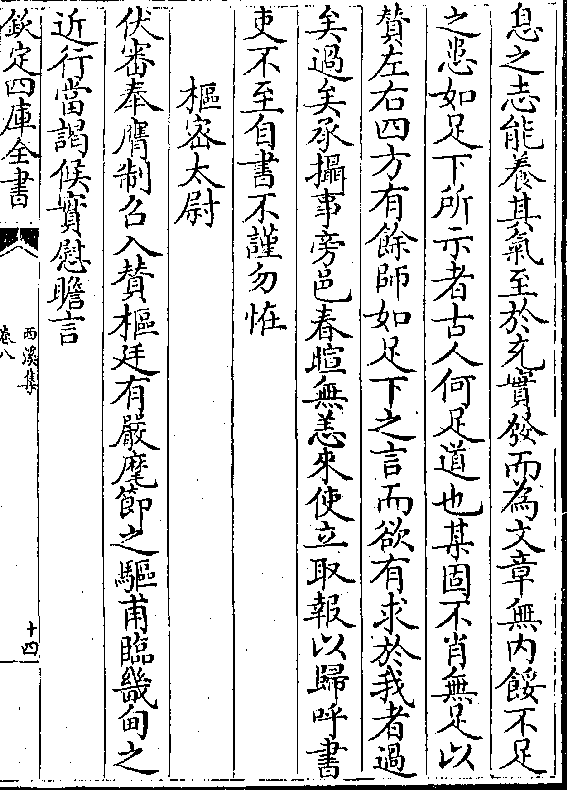 息之志能養其氣至於充實發而為文章無内餒不足
之患如足下所示者古人何足道也某固不肖無足以
賛左右四方有餘師如足下之言而欲有求於我者過
矣過矣承攝事旁邑春暄無恙來使立取報以歸呼書
吏不至自書不謹勿怪
樞密太尉
伏審奉膺制召入賛樞廷有嚴麾節之驅甫臨畿甸之
近行當謁候實慰瞻言
欽定四庫全書
西溪集
卷八
十四